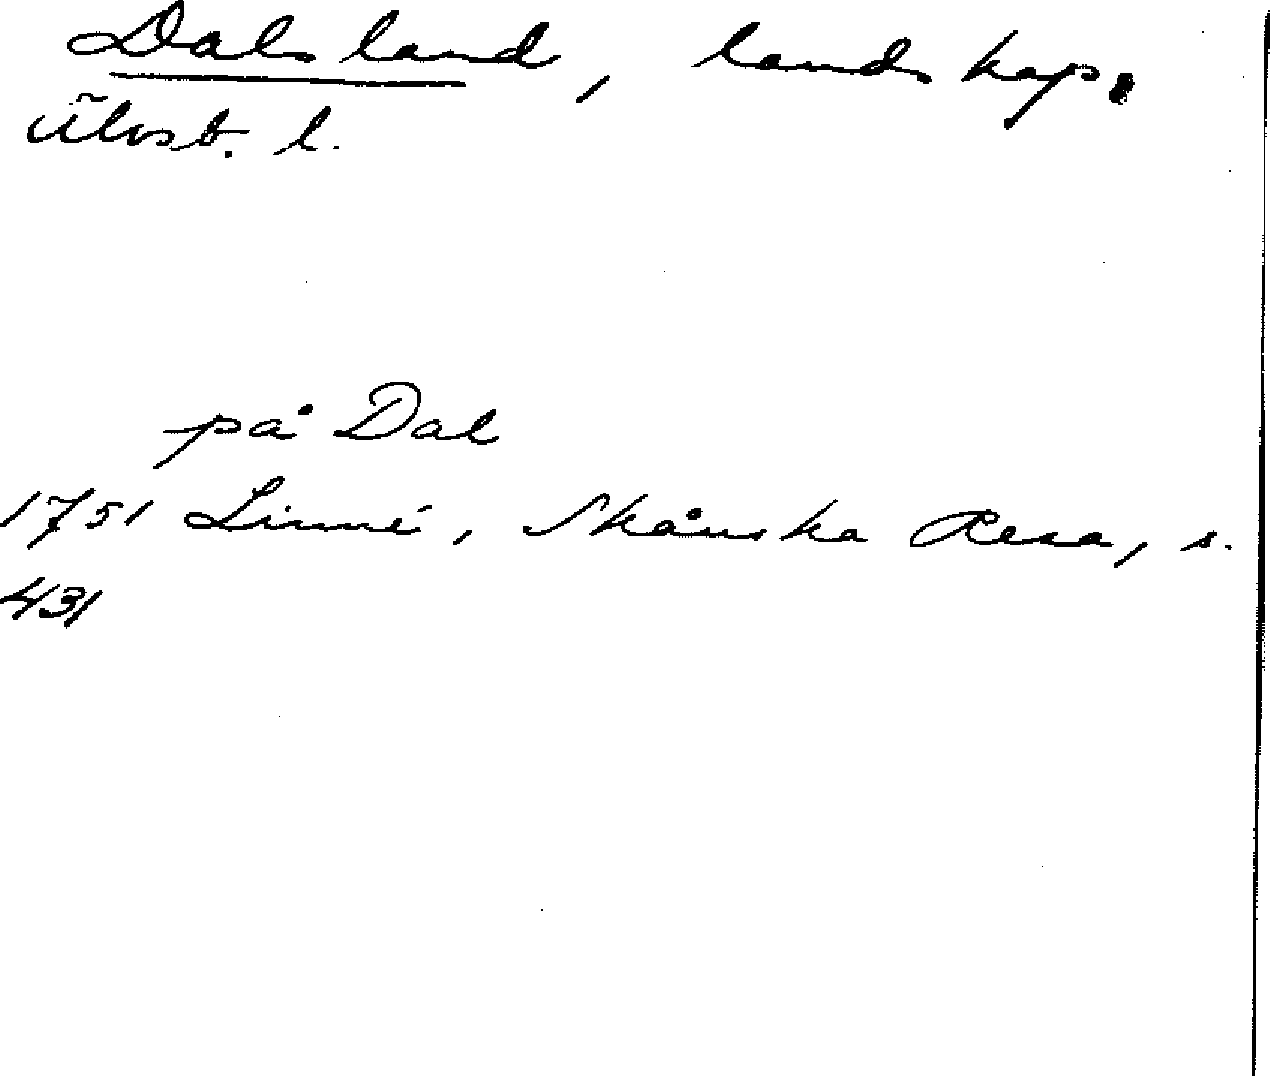 Dalsland, landskap.
Älvsb. l.
på Dal
1751 Linné, Skånska Resa, s.
431